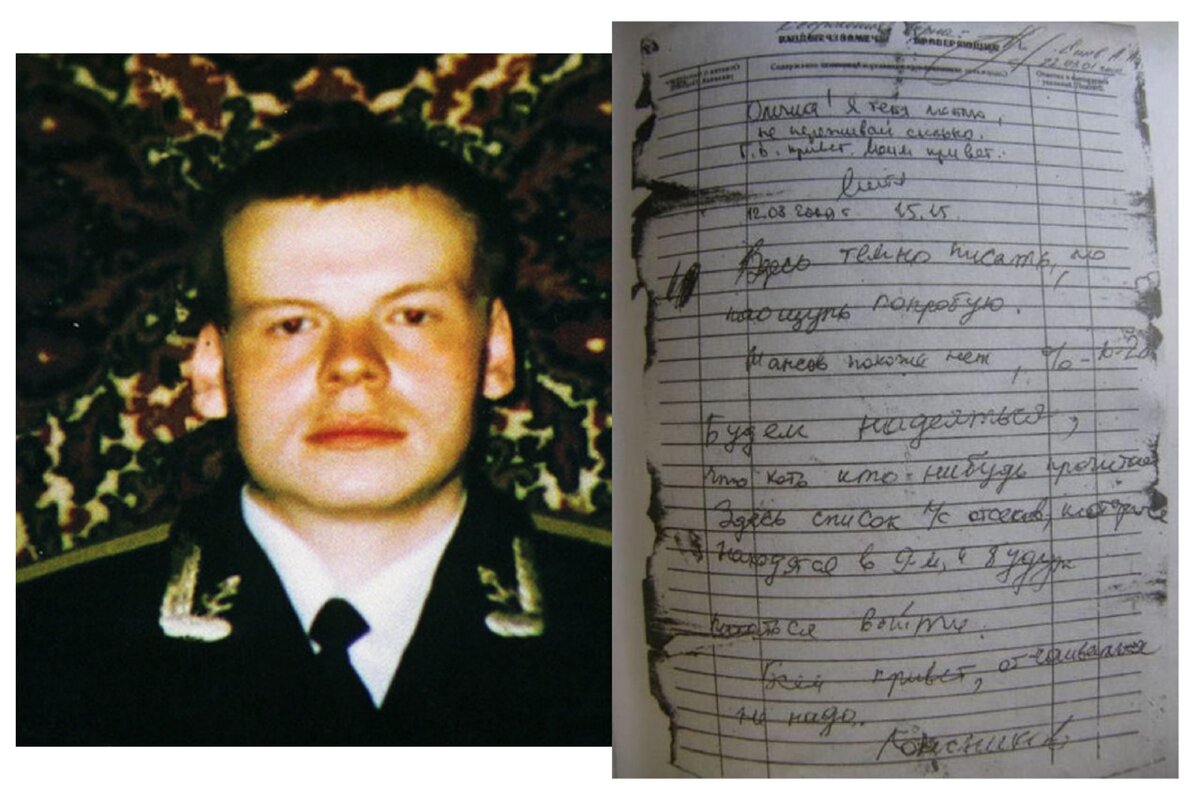 22.03.01
Олечка! Я тебя люблю,
не переживай сильно.
Г.В. привет. Моим привет.
Митя
12.08 2000 г 15.15.
Здесь темно писать, но
наощупь попробую.
Шансов похоже нет, %-10-20
Будем надеяться,
что хоть кто-нибудь прочитает
Здесь список л/с отсеков, которые
находятся в 9-м, и будут
пытаться выйти.
Всем привет, отчаиваться
не надо.
Колесников